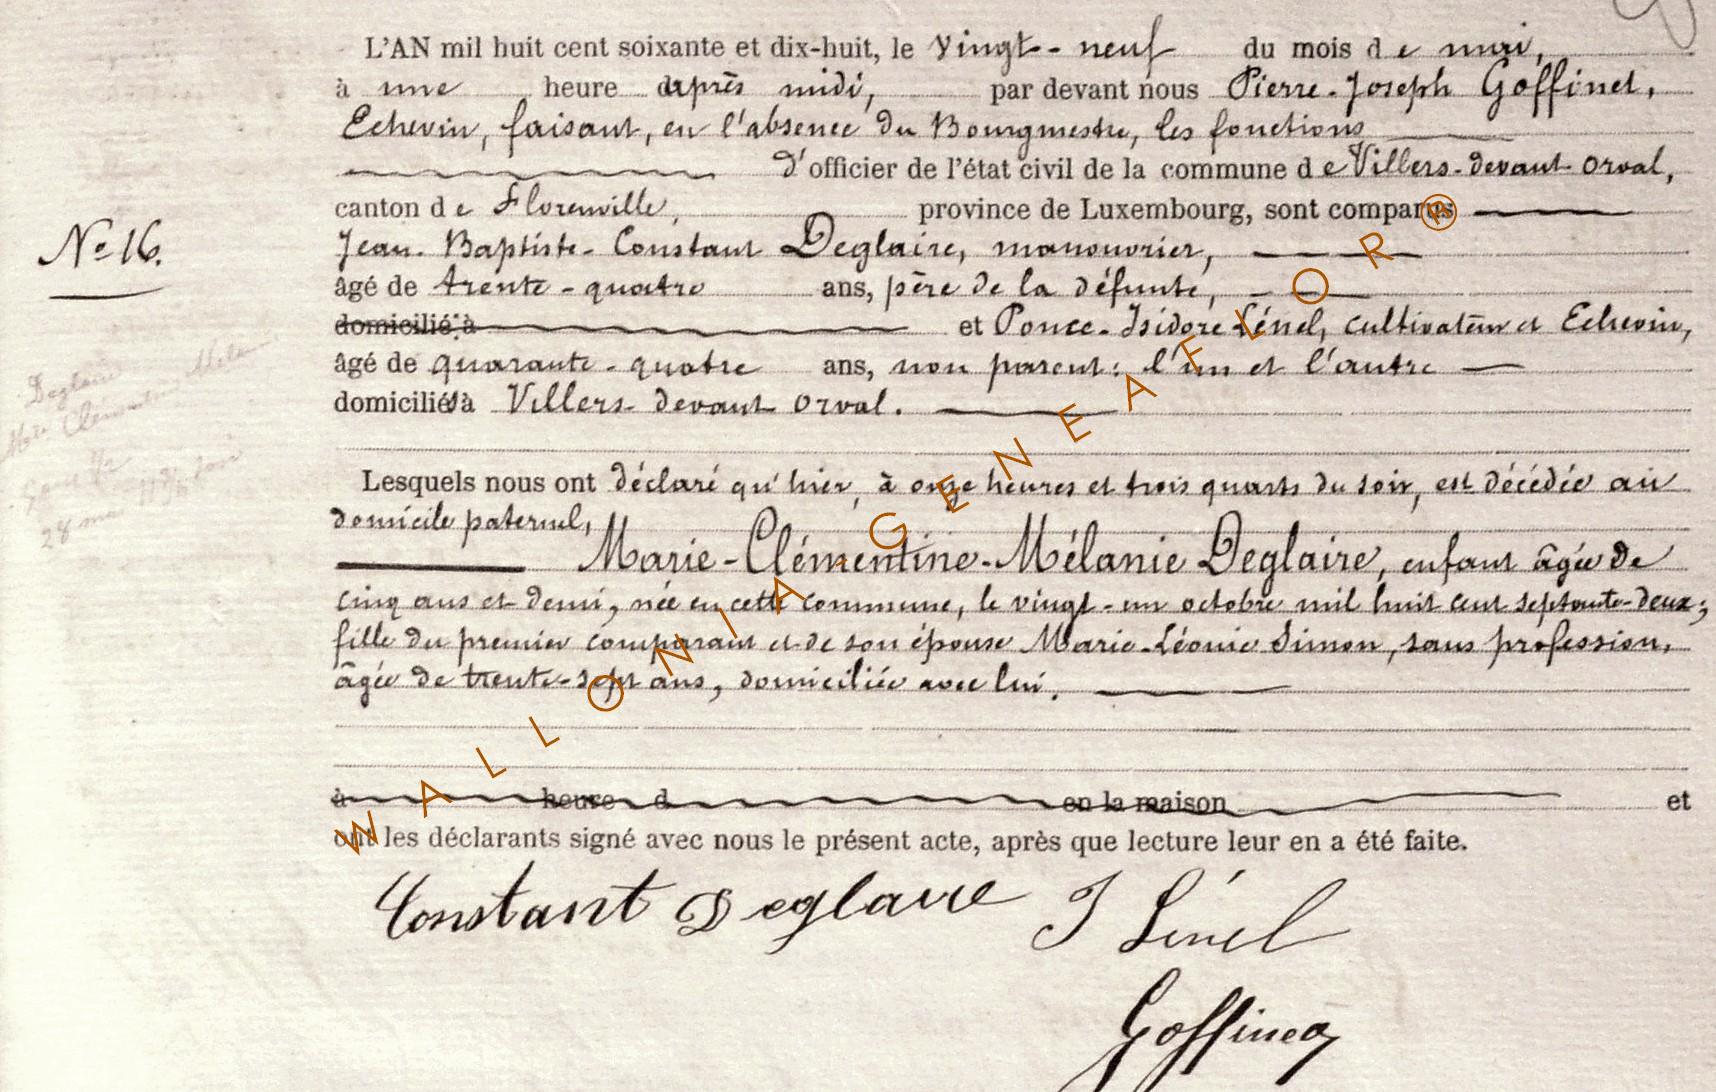 L'AN mil huit cent soixante et dix-huit, le Vingt-neuf du mois de mai,
à une heure d'après midi, par devant nous Pierre-Joseph Goffinet,
Echevin, faisant, en l'absence du Bourgmestre, les fonctions
d'officier de l'état civil de la commune de Villers-devant-Orval,
canton de Florenville, province de Luxembourg, sont comparus
Nº 16.
Jean-Baptiste-Constant Deglaire, manouvrier,
âgé de trente-quatre ans, père de la défunte,
domicilié à et Ponce-Isidore Lénel, cultivateur et Echevin,
âgé de quarante-quatre ans, non parent: l'un et l'autre
domiciliés à Villers-devant-Orval.
Deglaire Mélanie
Marie Clémentine
28 mai
Lesquels nous ont déclaré qu'hier, à onze heures et trois quarts du soir, est décédée au
domicile paternel,
Marie-Clémentine-Mélanie Deglaire, enfant âgée de
cinq ans et demi, née en cette commune, le vingt-un octobre mil huit cent septante-deux;
fille du premier comparant et de son épouse Marie-Léonie Simon, sans profession,
âgée de trente-sept ans, domiciliée avec lui.
à heure d en la maison et
ont les déclarants signé avec nous le présent acte, après que lecture leur en a été faite.
Constant Deglaire J Lénel
Goffinet
WALLONIA-GENEAFLOR®